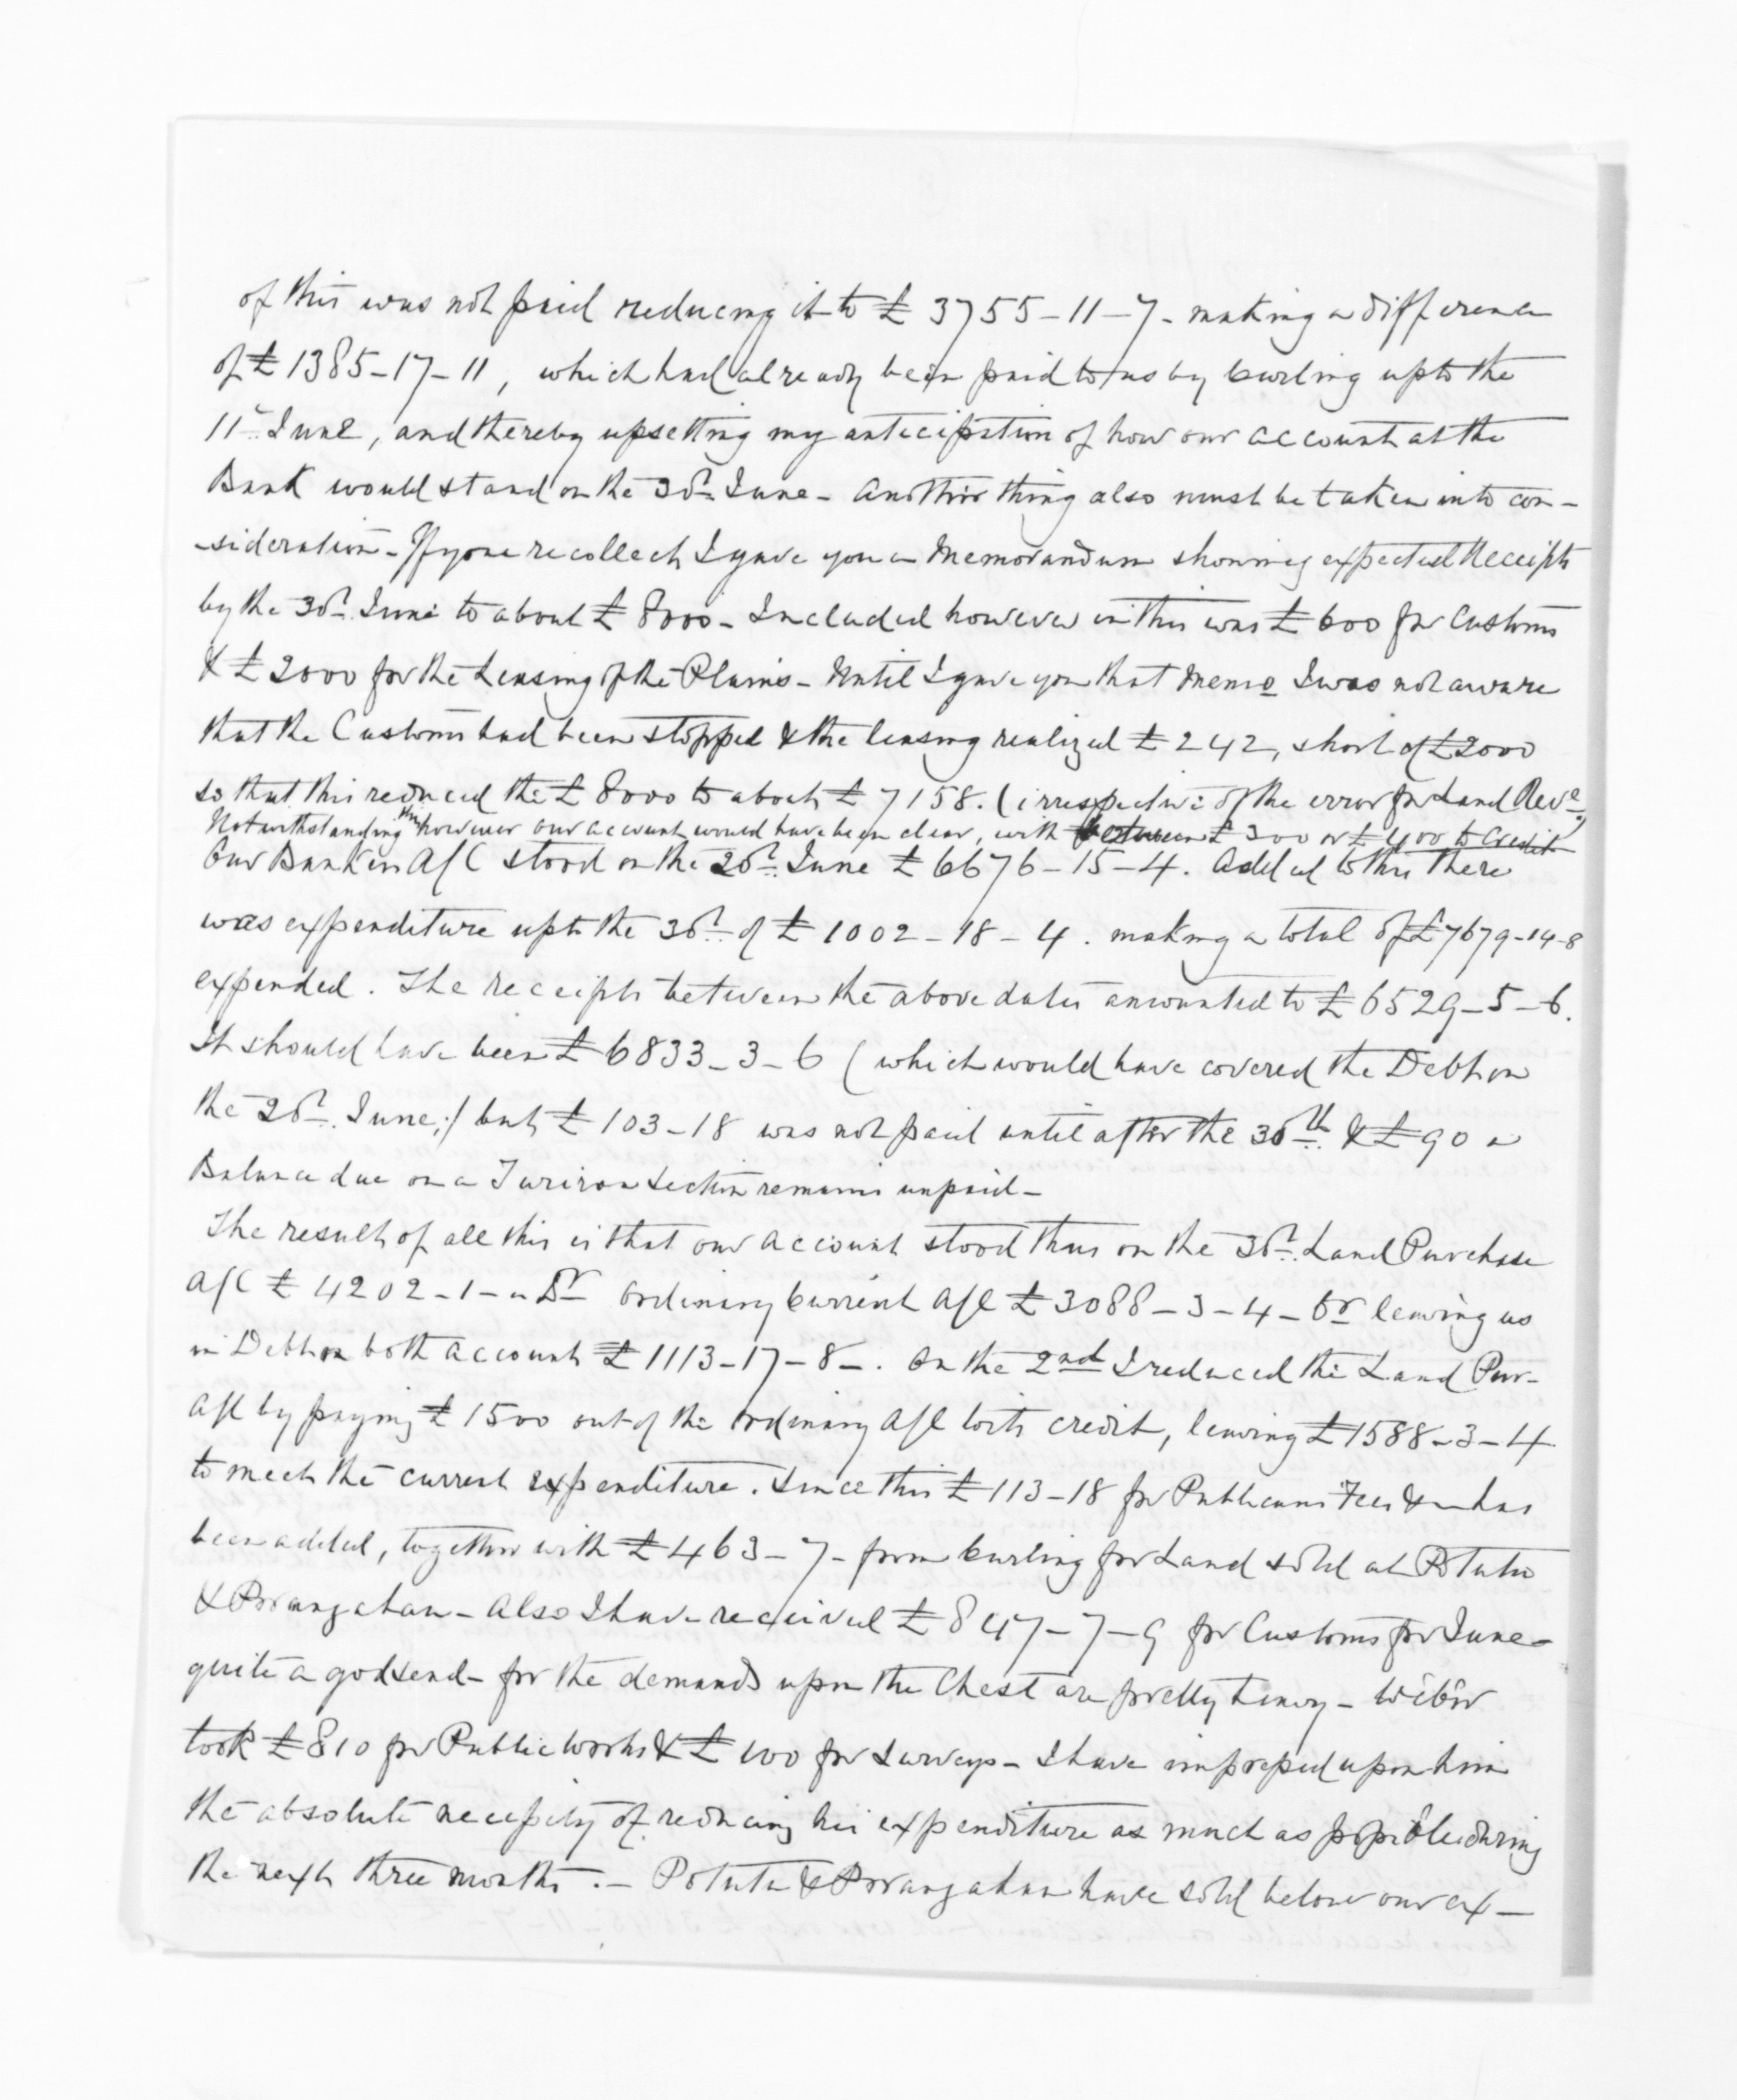 of this was not paid reducing it to £ 3755-11-7- making a difference
of £ 1385-17-11, which had already been paid to us by Curling up to the
11th June, and thereby upsetting my anticipation of how our account at the
Bank would stand on the 30th June - Another thing also must be taken into con-
-sideration - If you recollect I gave you a Memorandum showing expected Receipts
by the 30th June to about £ 8000 - Included however in this was £ 600 for Customs
& £ 2000 for the Leasing of the Plains - Until I gave you that Memo I was not aware
that the Customs had been stopped & the leasing realized £ 242, short of £2000
so that this reduced the £ 8000 to about £ 7158. (irrespective of the error for Land Reve.)
Notwithstanding this however our account would have been clear, with between £ 300 or £ 400 to credit
Our Bank in A/C stood on the 20th June £ 6676-15-4. Added to this there
was expenditure up to the 30th of £ 1002-18-4. making a total of £7679-14-8
expended. The receipts between the above dates amounted to £ 6529-5-6.
It should have been £ 6833-3-6 (which would have covered the Debt on
the 20th June;) but £ 103-18 was not paid until after the 30th. & £ 90 a
Balance due on a Section remains unpaid -
The result of all this is that our account stood thus on the 30th. Land Purchase
A/C £ 4202-1-" Dr Ordinary Current A/C £ 3088-3-4- Cr leaving us
in Debt on both accounts £ 1113-17-8-. On the 2nd I reduced the Land Pur-
A/C by paying £ 1500 out of the ordinary A/C to its credit, leaving £1588-3-4
to meet the current expenditure. Since this £ 113-18 for Publicans Fees & has
been added, together with £ 463-7- from Curling for Land sold at Potutu
& Porangahau - Also I have received £ 847-7-9 for Customs for June -
quite a godsend - for the demands upon the Chest are pretty heavy - Weber
took £ 810 for Public Works & £ 100 for Surveys - I have impressed upon him
the absolute necessity of reducing his expenditure as much as possible during
the next three months. - Potutu & Porangahau have sold below our ex-